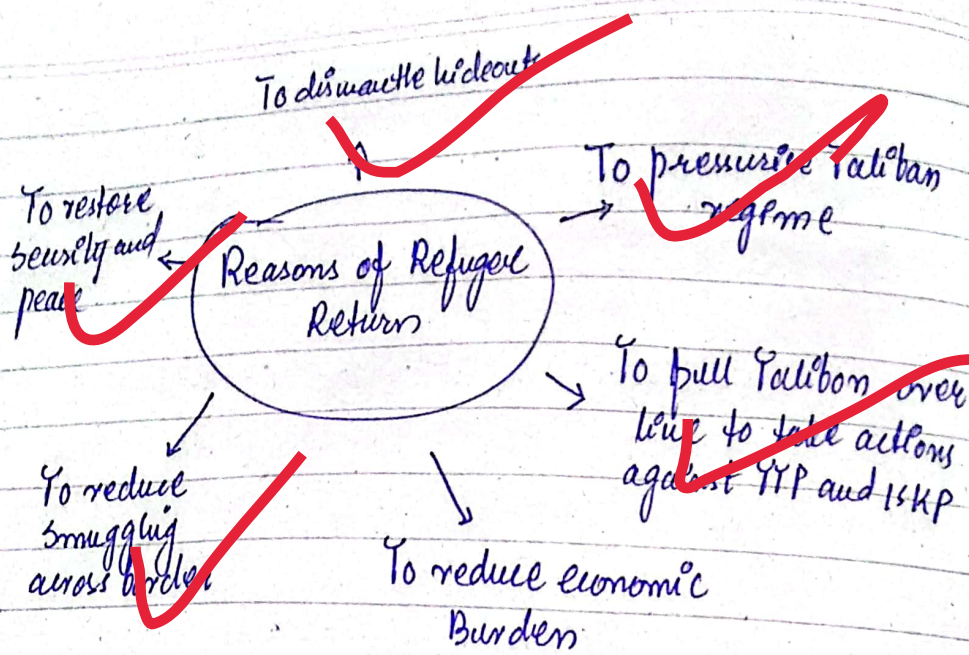 To dismantle hideouts
To pressurize Taliban
regime
To restore
security and
peace
Reasons of Refugee
Return
To pull Taliban over
line to take actions
against TTP and ISKP
To reduce
smuggling
across border
To reduce economic
Burden